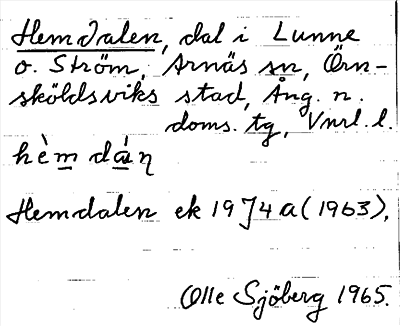 Hemdalen, dal i Lunne
o. Ström, Arnäs sn, Örn-
sköldsviks stad, Ång. n.
doms. tg, Vnrl. l.
hè̀m dáņ
Hemdalen ek 19J4a (1963).
Olle Sjöberg 1965.